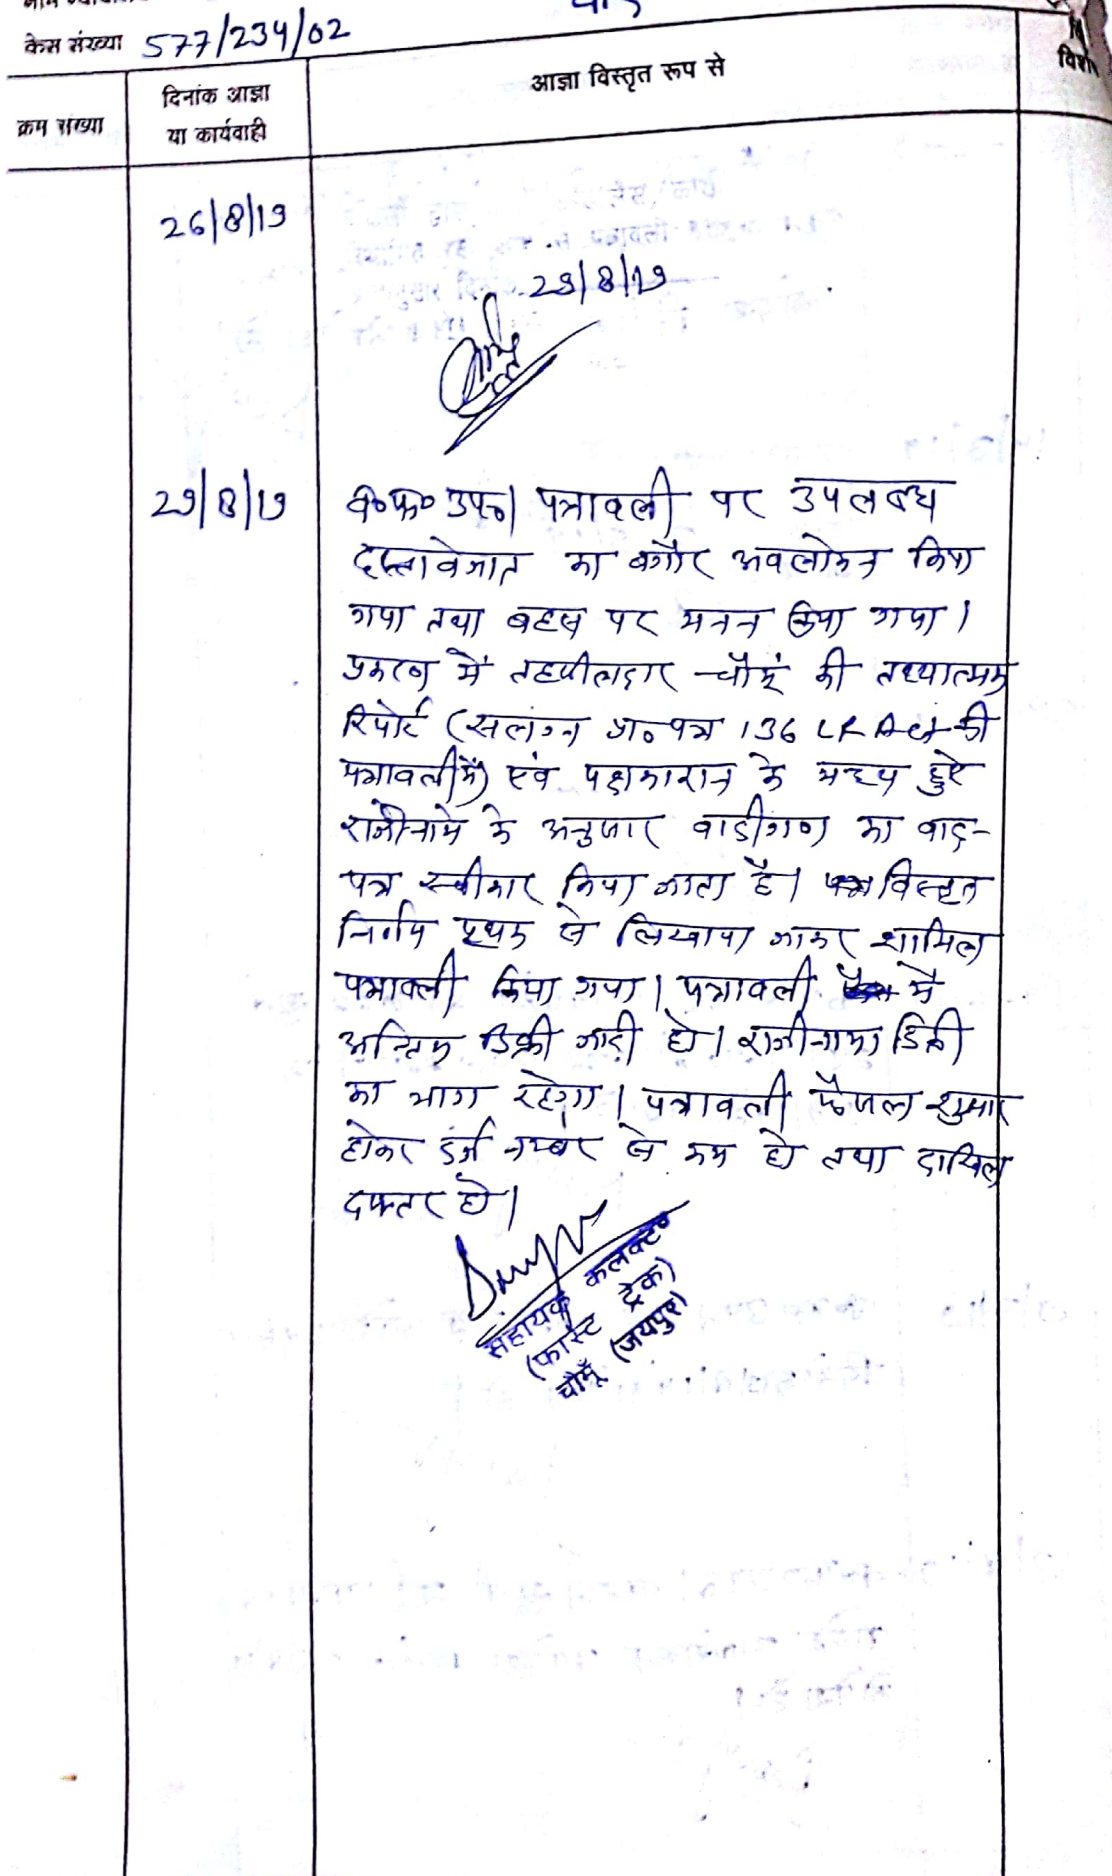 केस संख्या 577/234/02
क्रम संख्या
दिनांक आज्ञा
या कार्यवाही
आज्ञा विस्तृत रूप से
26/8/19
29/8/19
29/8/19
व०फ० उप०। पत्रावली पर उपलब्ध
दस्तावेजात का बगौर अवलोकन किया
गया तथा बहस पर मनन किया गया।
प्रकरण में तहसीलदार चौमूं की तथ्यात्मक
रिपोर्ट (सलंग्न प्रा०पत्र 136 LR Act की
पत्रावली में) एवं पक्षकारान के मध्य हुऐ
राजीनामे के अनुसार वादीगण का वाद-
पत्र स्वीकार किया जाता है। विस्तृत
निर्णय पृथक से लिखाया जाकर शामिल
पत्रावली किया गया। पत्रावली में
अन्तिम डिक्री जारी हो। राजीनामा डिक्री
का भाग रहेगा। पत्रावली फैसल शुमार
होकर दर्ज नम्बर से कम हो तथा दाखिल
दफ्तर हो।
सहायक कलक्टर
(फास्ट ट्रेक)
चौमूँ (जयपुर)